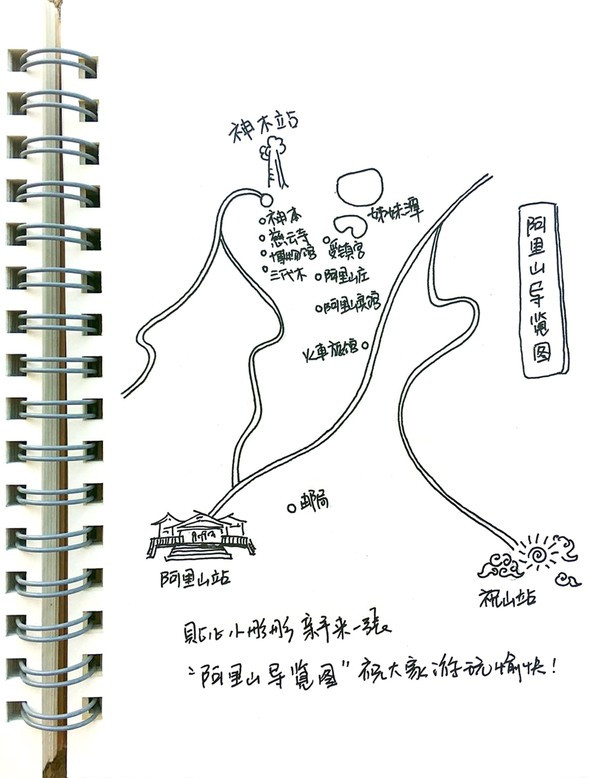 神木站
姊妹潭
神木
慈云寺
博物馆
三代木
受镇宫
阿里山庄
阿里山宾馆
火車旅馆
邮局
阿里山站
祝山站
阿里山导览图
贴心小彤彤亲手来一張
“阿里山导览图”祝大家游玩愉快!